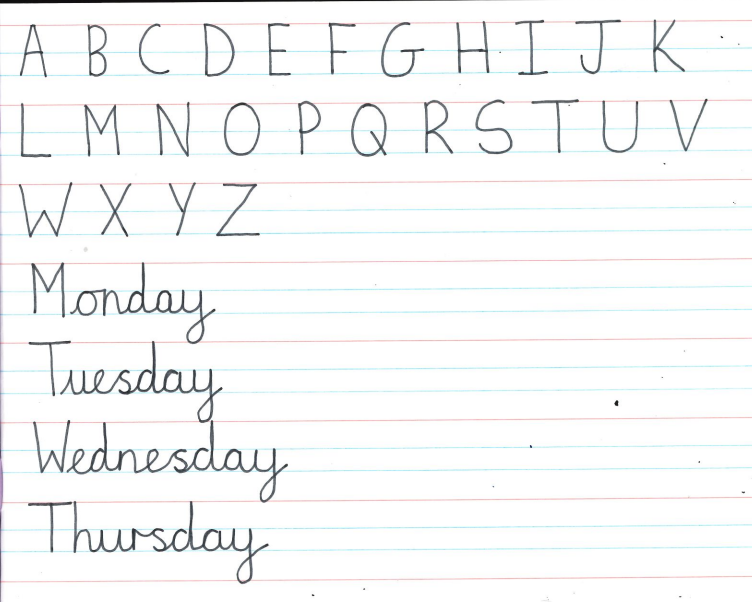 A B C D E F G H I J K
L M N O P Q R S T U V
W X Y Z
Monday
Tuesday
Wednesday
Thursday